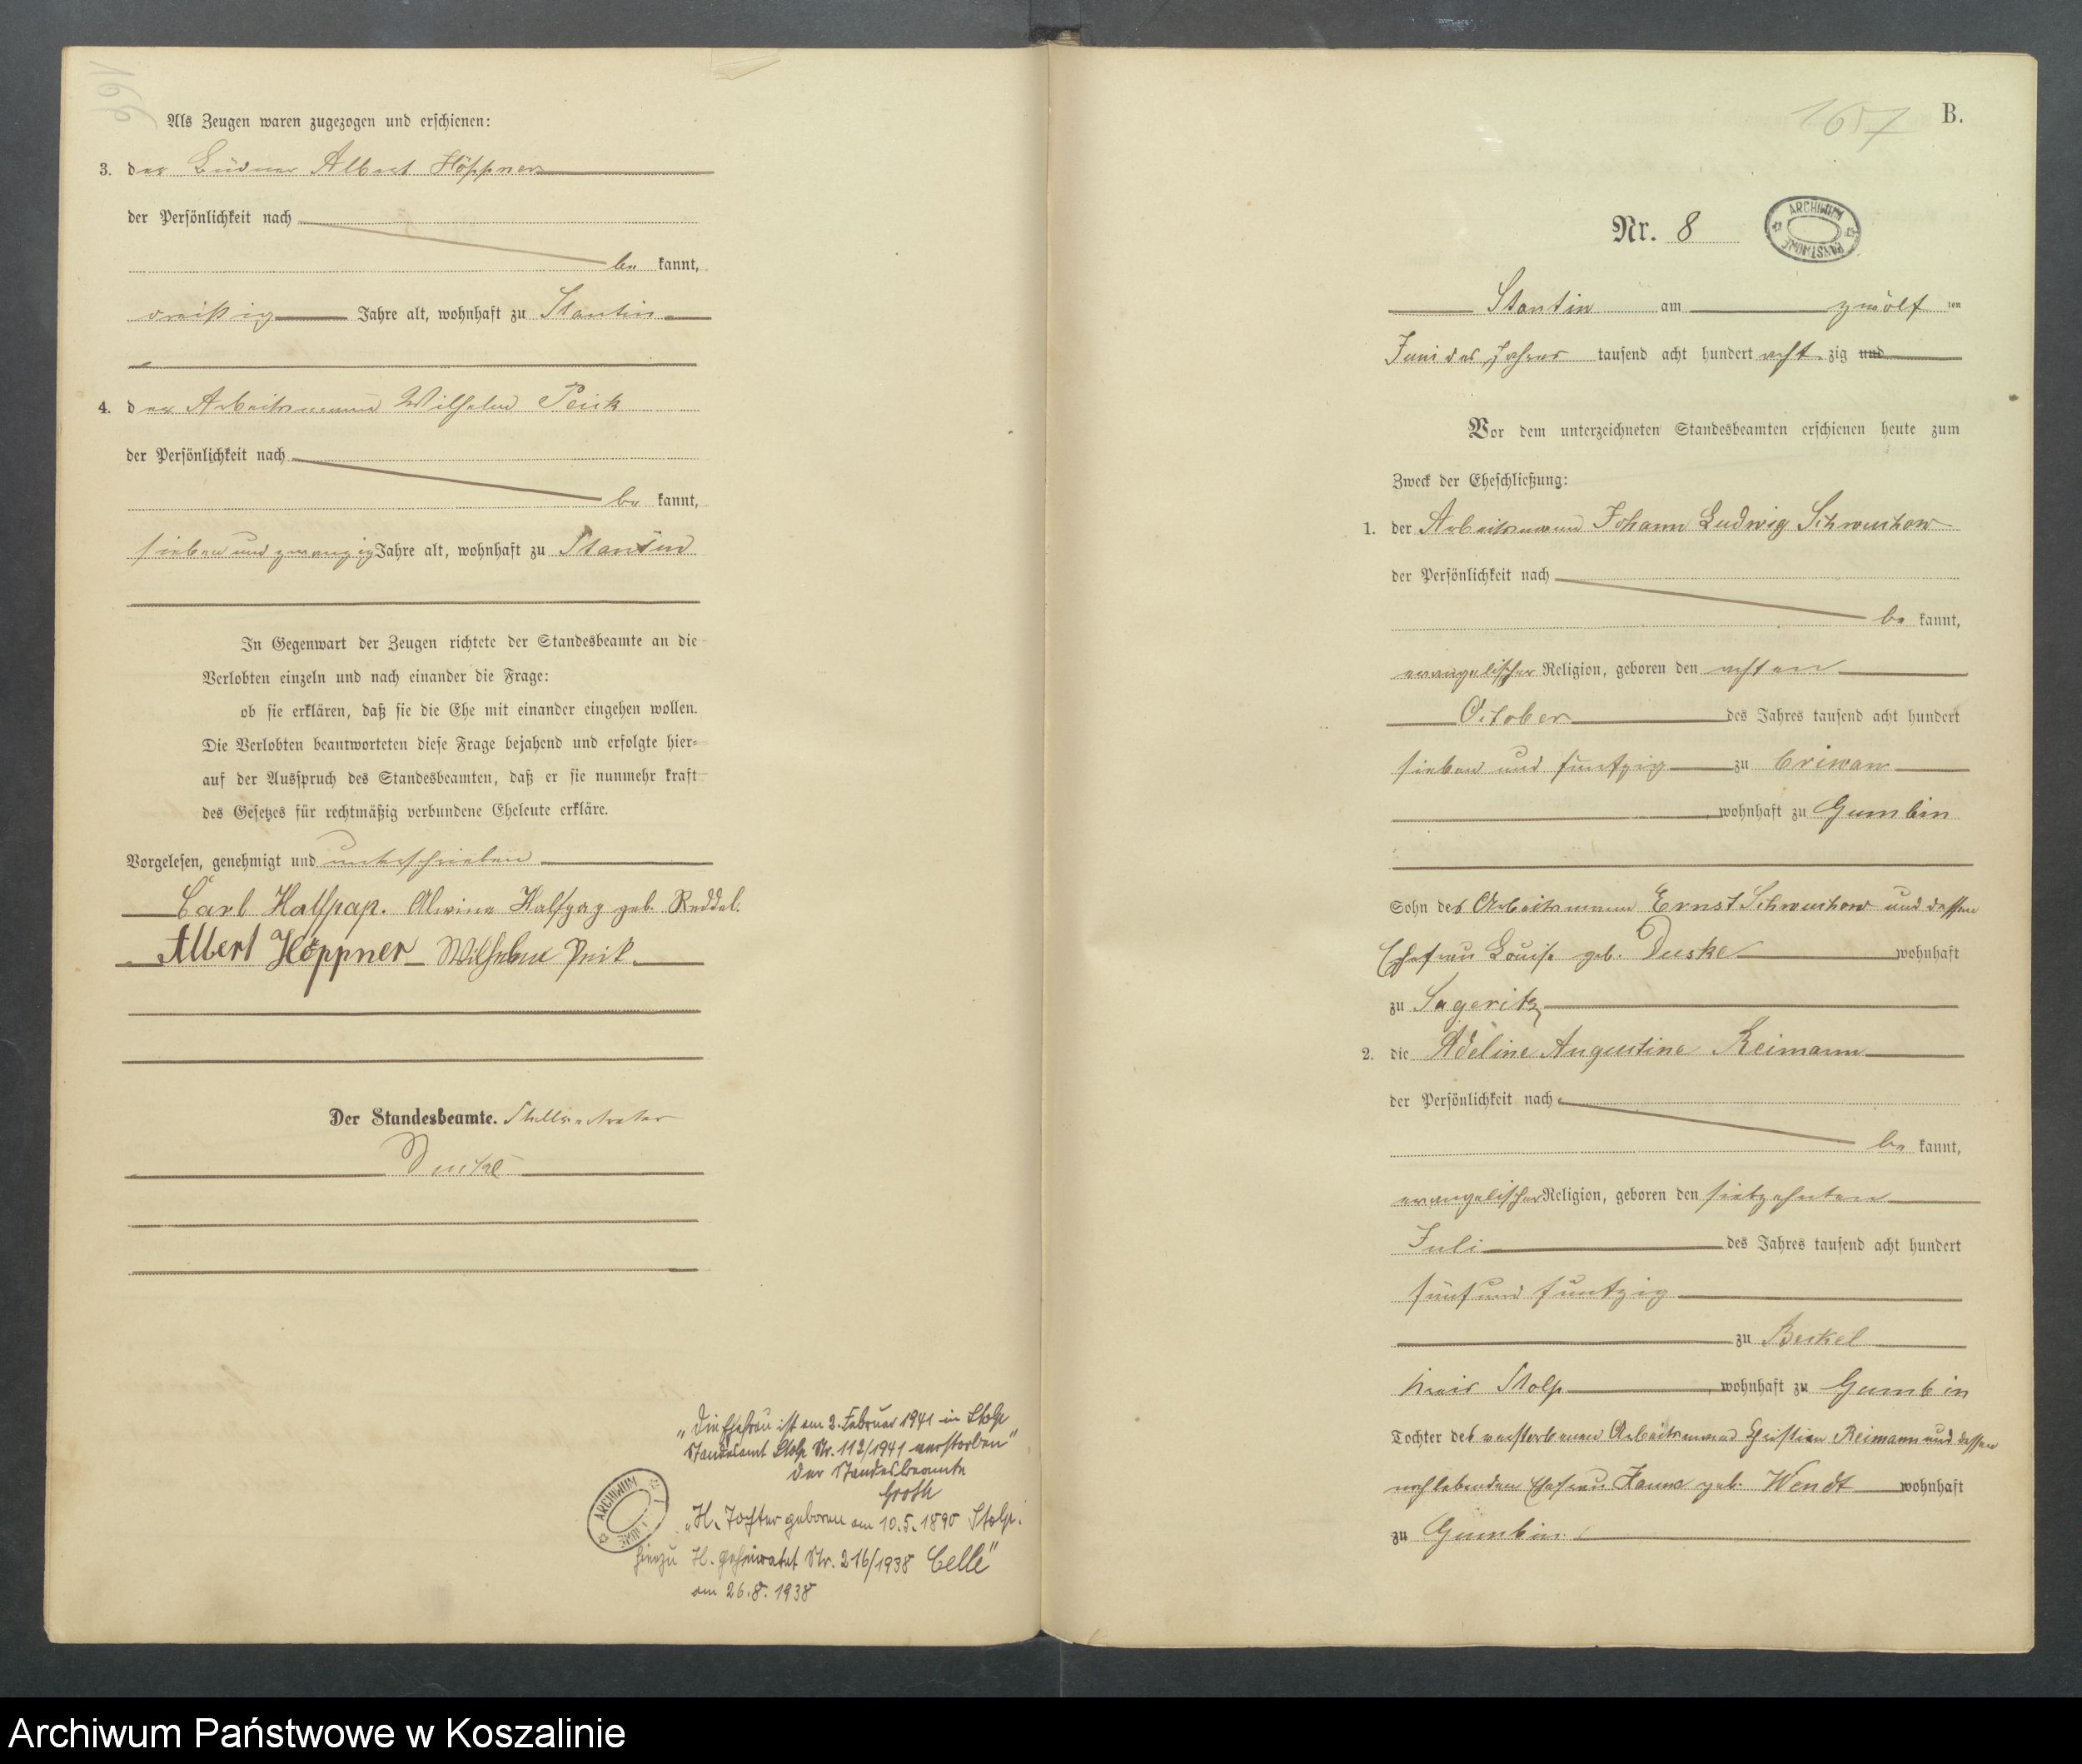 166
Als Zeugen waren zugezogen und erschienen:
3. der Büdner Albert Höppner
der Persönlichkeit nach
be kannt,
dreißig Jahre alt, wohnhaft zu Stantin
4. der Arbeitsmann Wilhelm Peik
der Persönlichkeit nach
be kannt,
sieben und zwanzig Jahre alt, wohnhaft zu Stantin
In Gegenwart der Zeugen richtete der Standesbeamte an die
Verlobten einzeln und nach einander die Frage:
ob sie erklären, daß sie die Ehe mit einander eingehen wollen.
Die Verlobten beantworteten diese Frage bejahend und erfolgte hier-
auf der Ausspruch des Standesbeamten, daß er sie nunmehr kraft
des Gesetzes für rechtmäßig verbundene Eheleute erkläre.
Vorgelesen, genehmigt und unterschrieben
Carl Halfpap. Alwine Halfpap geb. Reddel.
Albert Höppner Wilhelm Peik
Der Standesbeamte. Stellvertreter
"Die Ehefrau ist am 2. Februar 1941 in Stolp
Standesamt Stolp Nr. 112/1941 verstorben"
Der Standesbeamte
Groth
"H. Tochter geboren am 10.5.1890 Stolp.
hierzu H. geheiratet Nr. 216/1938 Celle"
am 26.8.1938
ARCHIWUM
157
B.
Nr. 8
ARCHIWUM PAŃSTWOWE
Stantin am zwölf ten
Juni des Jahres tausend acht hundert acht zig und
Vor dem unterzeichneten Standesbeamten erschienen heute zum
Zweck der Eheschließung:
1. der Arbeitsmann Johann Ludwig Schwuchow
der Persönlichkeit nach
be kannt,
evangelischer Religion, geboren den achten
October des Jahres tausend acht hundert
sieben und funfzig zu Criwan
, wohnhaft zu Gumbin
Sohn des Arbeitsmann Ernst Schwuchow und dessen
Ehefrau Louise geb. Duske wohnhaft
zu Sageritz
2. die Adeline Augustine Reimann
der Persönlichkeit nach
be kannt,
evangelischer Religion, geboren den siebzehnten
Juli des Jahres tausend acht hundert
fünf und funfzig
zu Beckel
Kreis Stolp, wohnhaft zu Gumbin
Tochter des verstorbenen Arbeitsmann Christian Reimann und dessen
nachlebenden Ehefrau Hanna geb. Wendt wohnhaft
zu Gumbin
Archiwum Państwowe w Koszalinie